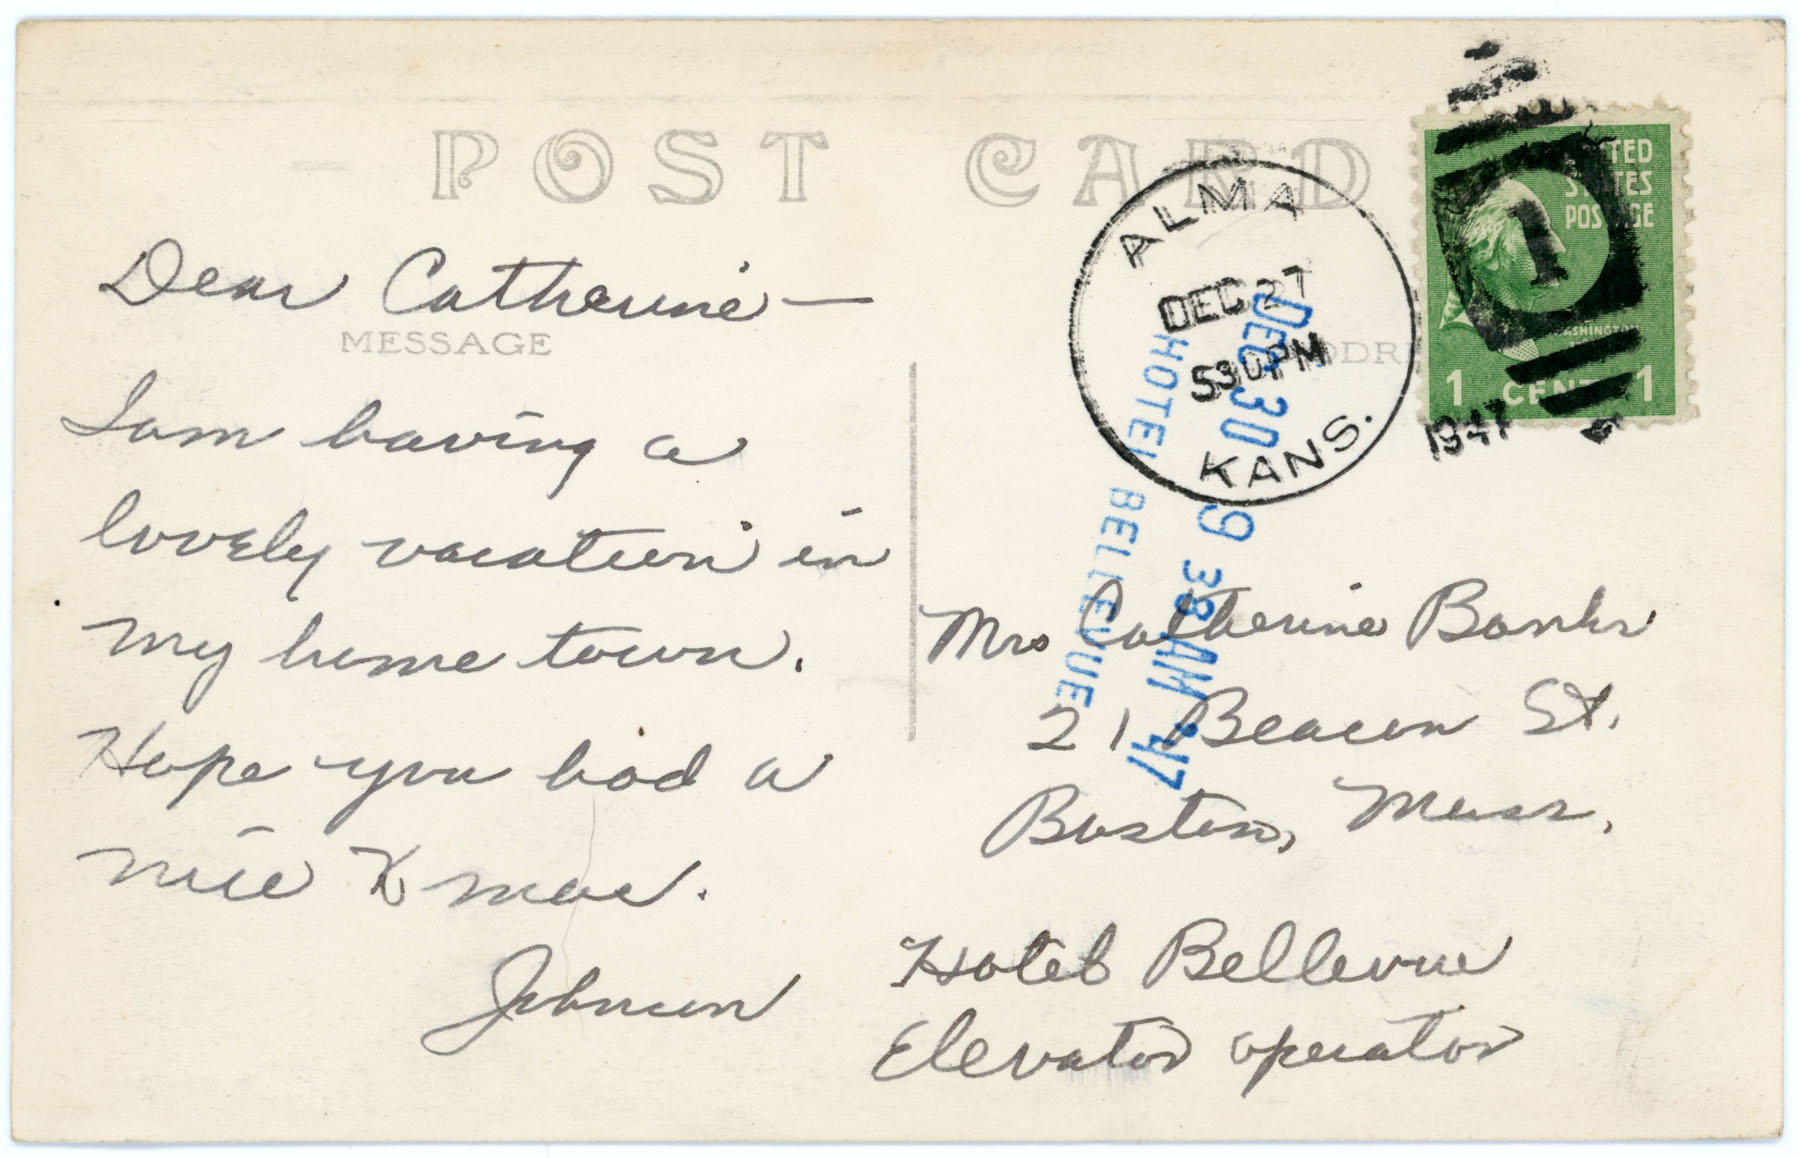 POST CARD
Dear Catherine —
MESSAGE
I am having a
lovely vacation in
my home town.
Hope you had a
nice Xmas.
Johnson
ALMA
DEC 27
530 PM
KANS.
1947
UNITED
STATES
POSTAGE
1
WASHINGTON
1 CENT 1
DEC 30 9 38 AM '47
HOTEL BELLEVUE
Mrs Catherine Banks
21 Beacon St.
Boston, Mass.
Hotel Bellevue
Elevator operator